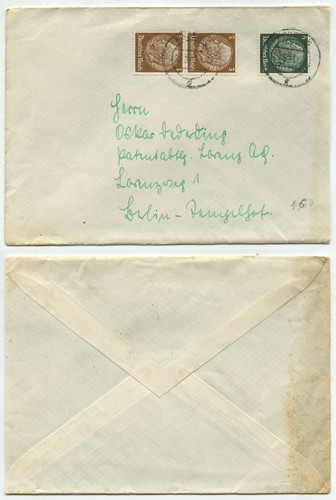 Deutsches Reich
Herrn
Oskar Dederding
Patentabtlg. Lorenz AG.
Lorenzweg 1
Berlin-Tempelhof.